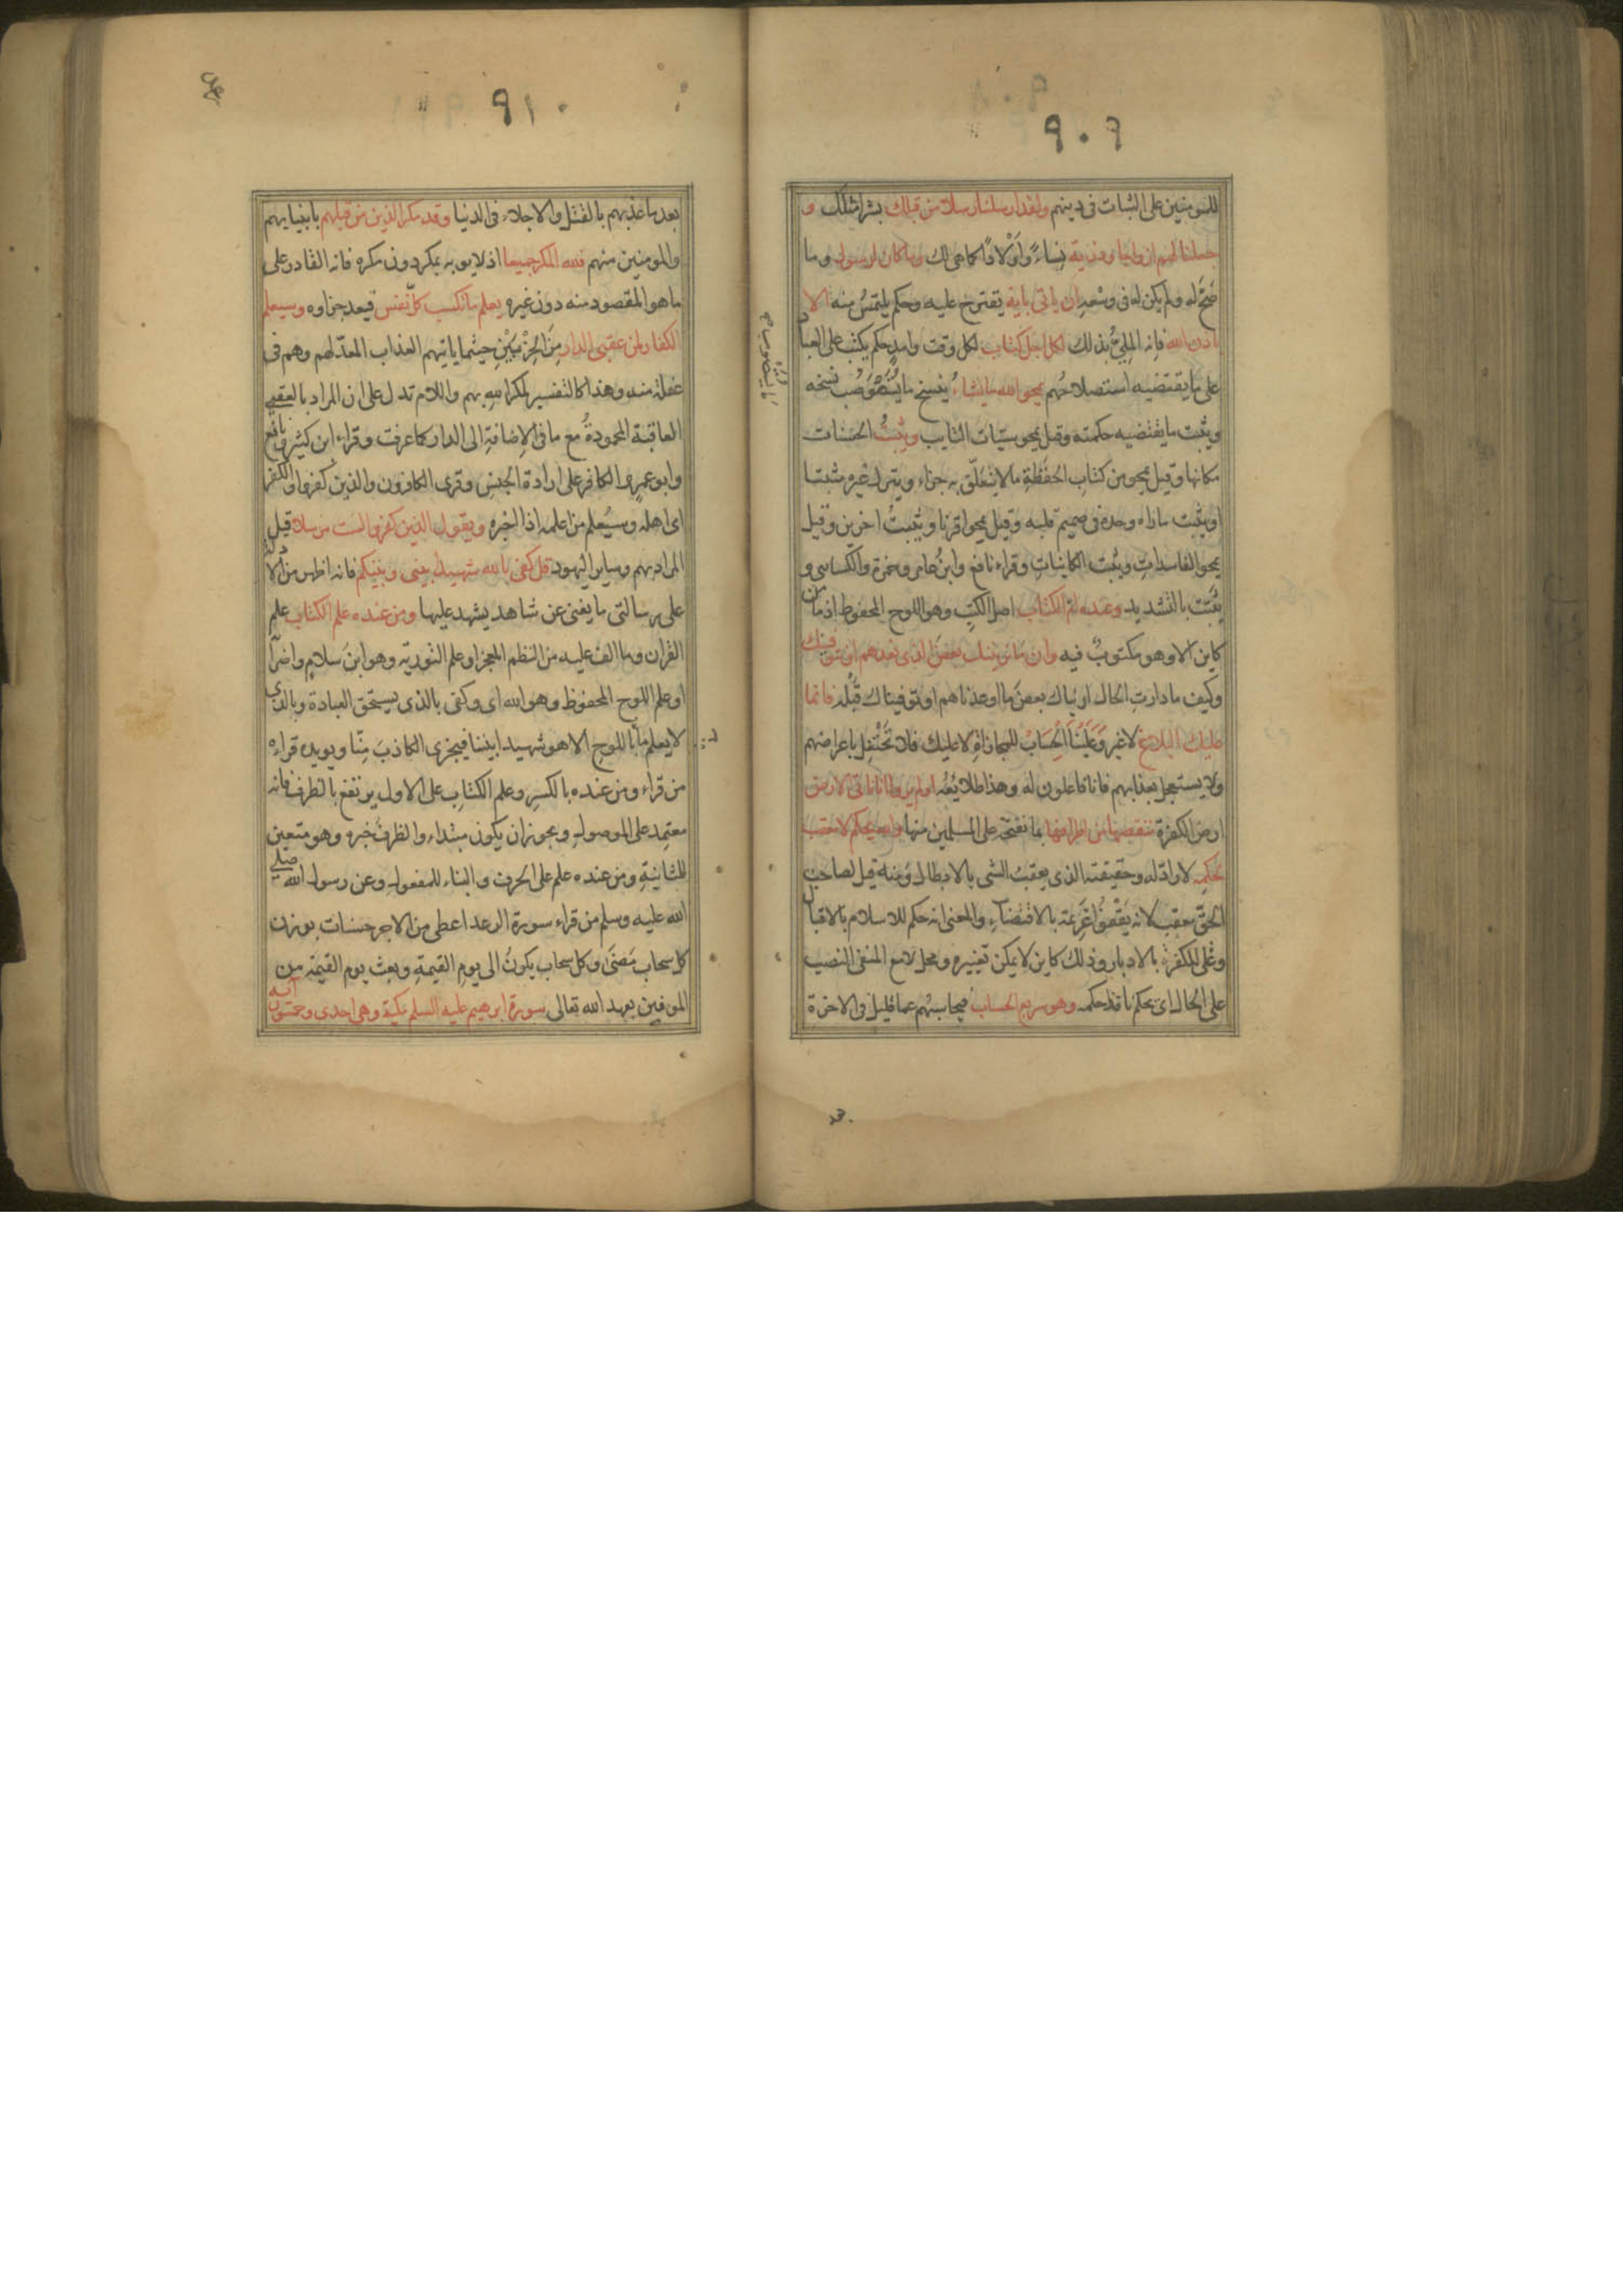 ٩٠٩
للمؤمنين على الثبات فى دينهم ولقد ارسلنا رسلا من قبلك بشرا مثلك و
جعلنا لهم ازواجا وذرية نِساءً وَاَوْلادًا كما هى لك وما كان لرسول وما
صَحّ له ولم يكن له فى وسْعه ان ياتى باية تقترح عليه وحكم يلتمسُ منه الا
باذن الله فانه المليُّ بذلك لكل اجل كتاب لكل وقت وامد حكم يكتب على العباد
على ما يقتضيه استصلاحُهم يمحو الله ما يشاءُ ينسخ ما يُسْتَصْوَبُ نسخه
ويثبت ما يقتضيه حكمته وقيل يمحو سيّات التايب ويثبتُ الحسَنات
مكانها وقيل يمحو من كتابِ الحَفَظةِ ما لا يتعَلّق به جزاء ويترك غيره مثبتا
او يثبت ما راه وحده فى صميم قلبه وقيل يمحوا قرنا ويثبتُ اخرين وقيل
يمحو الفاسداتِ ويثبت الكايناتِ وقراء نافع وابنُ عامر وحمزة والكسائى و
يُثَبّت بالتشديد وعنده امّ الكتاب اصل الكتبِ وهو اللوح المحفوظ اذ ما من
كاين الا وهو مكتوبٌ فيه وان ما نرينك بعضَ الذى نعدهم او نتوفينك
وكيف ما دارتِ الحال اريناك بعضَ ما اوعدناهم او توفيناك قَبْله فانما
عليك البلاغ لا غير وَعَلَيْنَا الْحِسَابْ للمجازاةِ لا عليك فلا تَحْتَفِل باعراضهم
ولا يستعجل بعذابهم فانا فاعلون له وهذا طلائعُه اولم يروا انا ناتى الارض
ارض الكفرة ننقصها من اطرافها بما نفتحه على المسلمين منها والله يحكم لا معقب
لحكمِه لا رادّ له وحقيقته الذى يعقبُ الشى بالابطال ومنه قيل لصاحب
الحقّ معقب لانه يَقْفُوا غريمه بالاقتضآءِ والمعنى انه حكم للاسلام بالاقبال
وعلى الكفرة بالادبار وذلك كاين لا يمكن تغييره ومحل لا مع المنفى النصب
على الحال اى يحكم نافذ حكمه وهو سريع الحساب فيحاسبُهم عما قليل فى الاخرة
٩١٠
بعد ما عذبهم بالقتل والاجلاء فى الدنيا وقد مكر الذين من قبلهم بانبيايهم
والمومنين منهم فلله المكر جميعا اذ لا يوبه بمكر دون مكره فانه القادر على
ما هو المقصود منه دون غيره يعلم ما تكسب كلّ نفس فيعد جزاوه وسيعلم
الكفار لمن عقبى الدار مِنَ الحِزْبَيْنِ حيثما ياتيهم العذاب المعدّ لهم وهم فى
غفلة منه وهذا كالتفسير لمكر اللهِ بهم واللام تدل على ان المراد بالعقبى
العاقبة المحمودةُ مع ما فى الاِضافةِ الى الدار كما عرفت وقراء ابن كثير ونافع
وابو عمرو الكافر على ارادة الجنسِ وقرى الكافرون والذين كفروا والكفر
اى اهله وسيُعلم من اعلمه اذا اخبره ويقول الذين كفروا لست مرسلا قيل
المراد بهم رسايل اليهود قل كفى بالله شهيدا بينى وبينكم فانه اظهر من الادلة
على رسالتى ما يغنى عن شاهد يشهد عليها ومن عنده علم الكتاب علم
القران وما الف عليه من النظم المعجز او علم التوريه وهو ابنُ سلامٍ واضرا
او علم اللوح المحفوظ وهو الله اى وكفى بالذى يستحق العبادة وبالذى
لا يعلم ما باللوحِ الا هو شهيدا بيننا فيجزى الكاذبَ مِنّا ويويده قراءه
من قراء ومن عنده بالكسرِ وعلم الكتابِ على الاول يرتفع بالظرف فانه
معتمِد على الموصولِ ويجوز ان يكون مبتداء والظرفُ خبره وهو متعين
للثانيةِ ومن عنده علم على الحرف والبناء للمفعولِ وعن رسول الله صلى
الله عليه وسلم من قراء سورة الرعد اعطى من الاجر حسنات بوزن
كل سحاب مَضىَ وكل سحاب يكونُ الى يومِ القيمةِ وبعث يوم القيمة من
الموفين بعهد الله تعالى سورة ابرهيم عليه السلم مكية وهى احدى وخمسون آيه